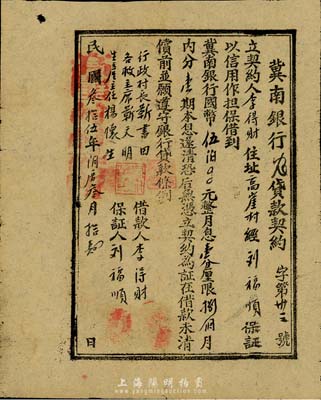 冀南銀行貸款契約 字第卅三號
立契約人李得財住址高崖村經刘福順保証
以信用作担保借到
冀南銀行國幣伍泊00元整月息壹分厘限捌個月
內分壹期本息還清恐后無憑立契約為証在借款未清
償前並願遵守銀行貸款條例
行政村長靳書田 借款人李得財
各救主席靳天明 保証人刘福順
生產主任楊懷生
民國叁拾伍年阴居叁月拾 日
上海陽明拍賣